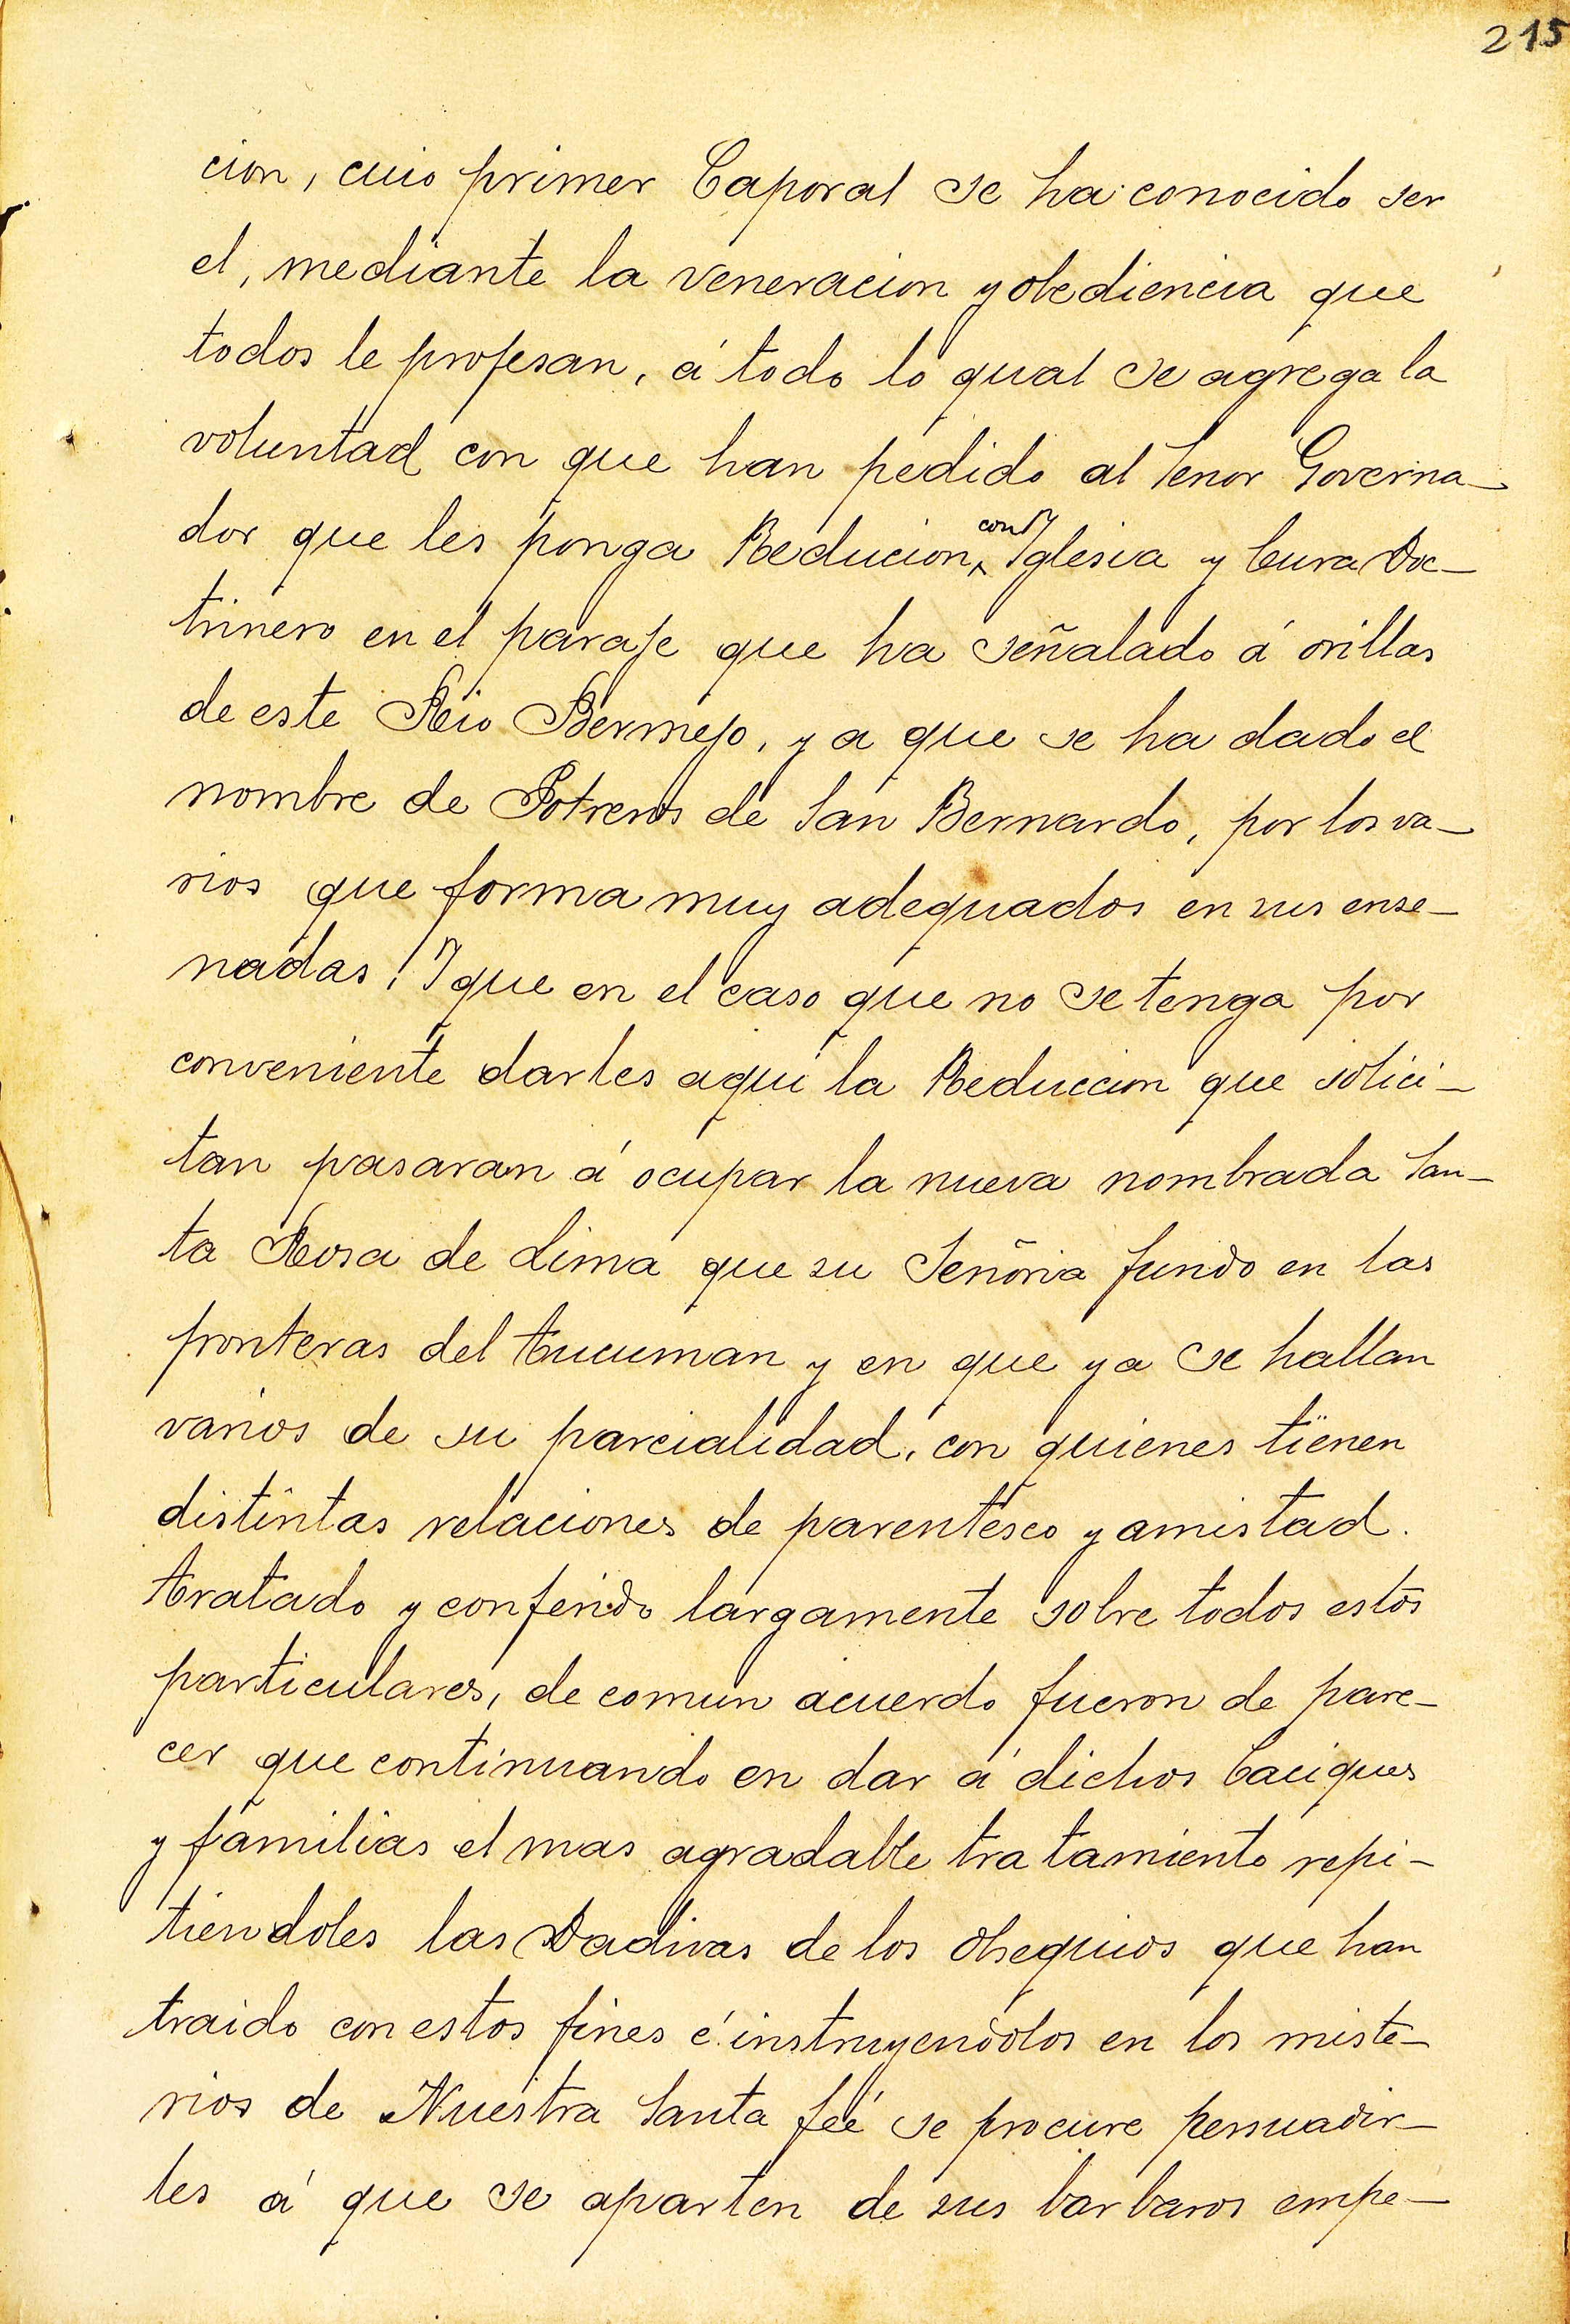 215
cion, cuio primer Caporal se ha conocido ser
el, mediante la veneracion y obediencia que
todos le profesan, á todo lo qual se agrega la
voluntad con que han pedido al Senor Governa-
dor que les ponga Reducion, con Iglesia y Cura Doc-
trinero en el paraje que ha señalado á orillas
de este Reio Bermejo, y a que se ha dado el
nombre de Potreros de San Bernardo, por los va-
rios que forma muy adequados en sus ense-
nadas; Y que en el caso que no se tenga por
conveniente darles aqui la Reduccion que solici-
tan pasaran á ocupar la nueva nombrada San-
ta Rosa de Lima que su Señoria fundo en las
fronteras del Tucuman y en que ya se hallan
varios de su parcialidad, con quienes tienen
distintas relaciones de parentesco y amistad.
Tratado y conferido largamente sobre todos estos
particulares, de comun acuerdo fueron de pare-
cer que continuando en dar á dichos Caciques
y familias el mas agradable tratamiento repi-
tiendoles las Dadivas de los Obsequios que han
traido con estos fines é instruyendolos en los miste-
rios de Nuestra Santa feé se procure persuadir-
les á que se aparten de sus barbaros empe-